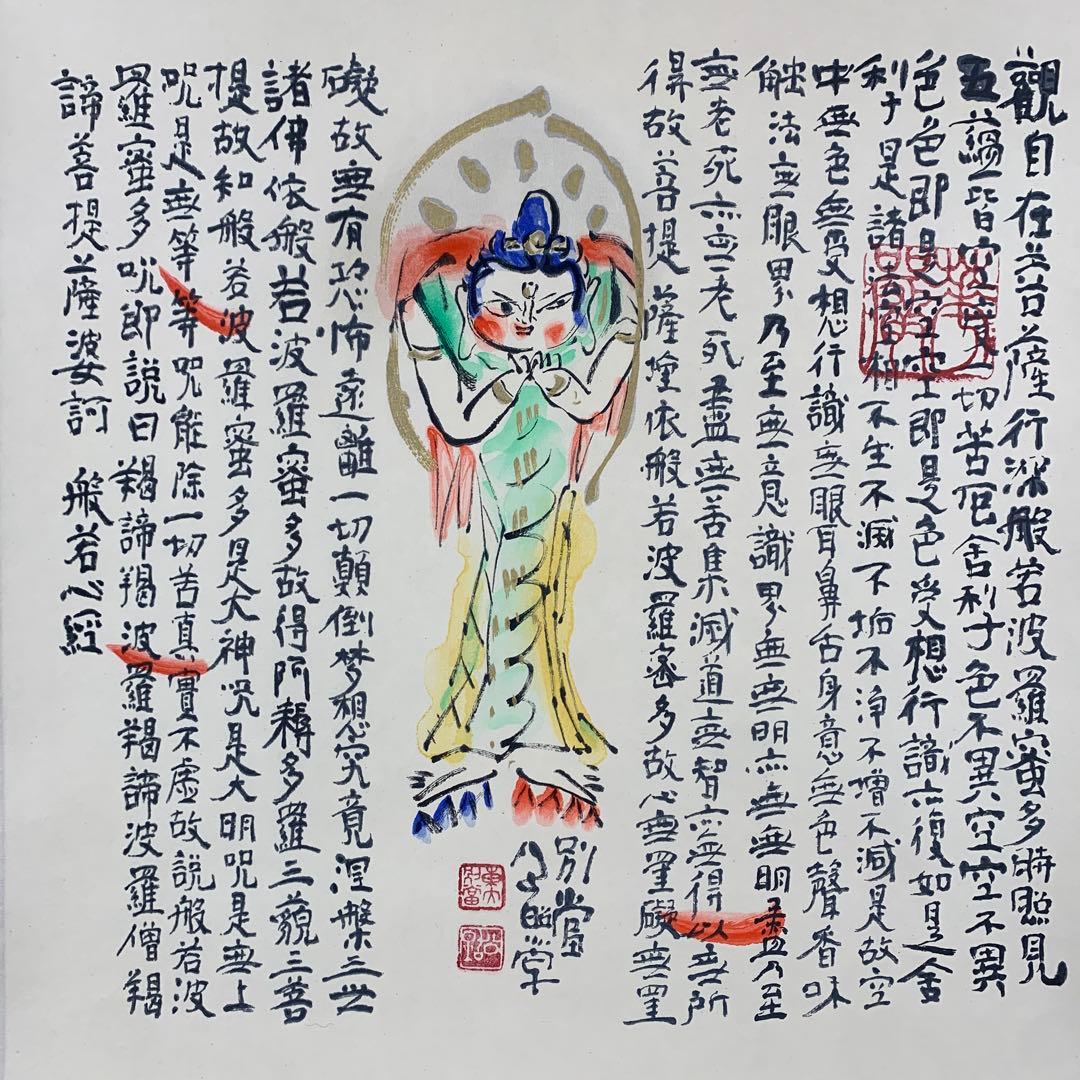 觀自在菩薩行深般若波羅蜜多時照見
五蘊皆空度一切苦厄舍利子色不異空空不異
色色即是空空即是色受想行識亦復如是舍
利子是諸法空相不生不滅不垢不淨不增不減是故空
中無色無受想行識無眼耳鼻舌身意無色聲香味
觸法無眼界乃至無意識界無無明亦無無明盡乃至
無老死亦無老死盡無苦集滅道無智亦無得以無所
得故菩提薩埵依般若波羅蜜多故心無罣礙無罣
礙故無有恐怖遠離一切顛倒梦想究竟涅槃三世
諸佛依般若波羅蜜多故得阿耨多羅三藐三菩
提故知般若波羅蜜多是大神咒是大明咒是無上
咒是無等等咒能除一切苦真實不虛故說般若波
羅蜜多咒即說曰羯諦羯波羅羯諦波羅僧羯
諦菩提薩婆訶 般若心經
別當